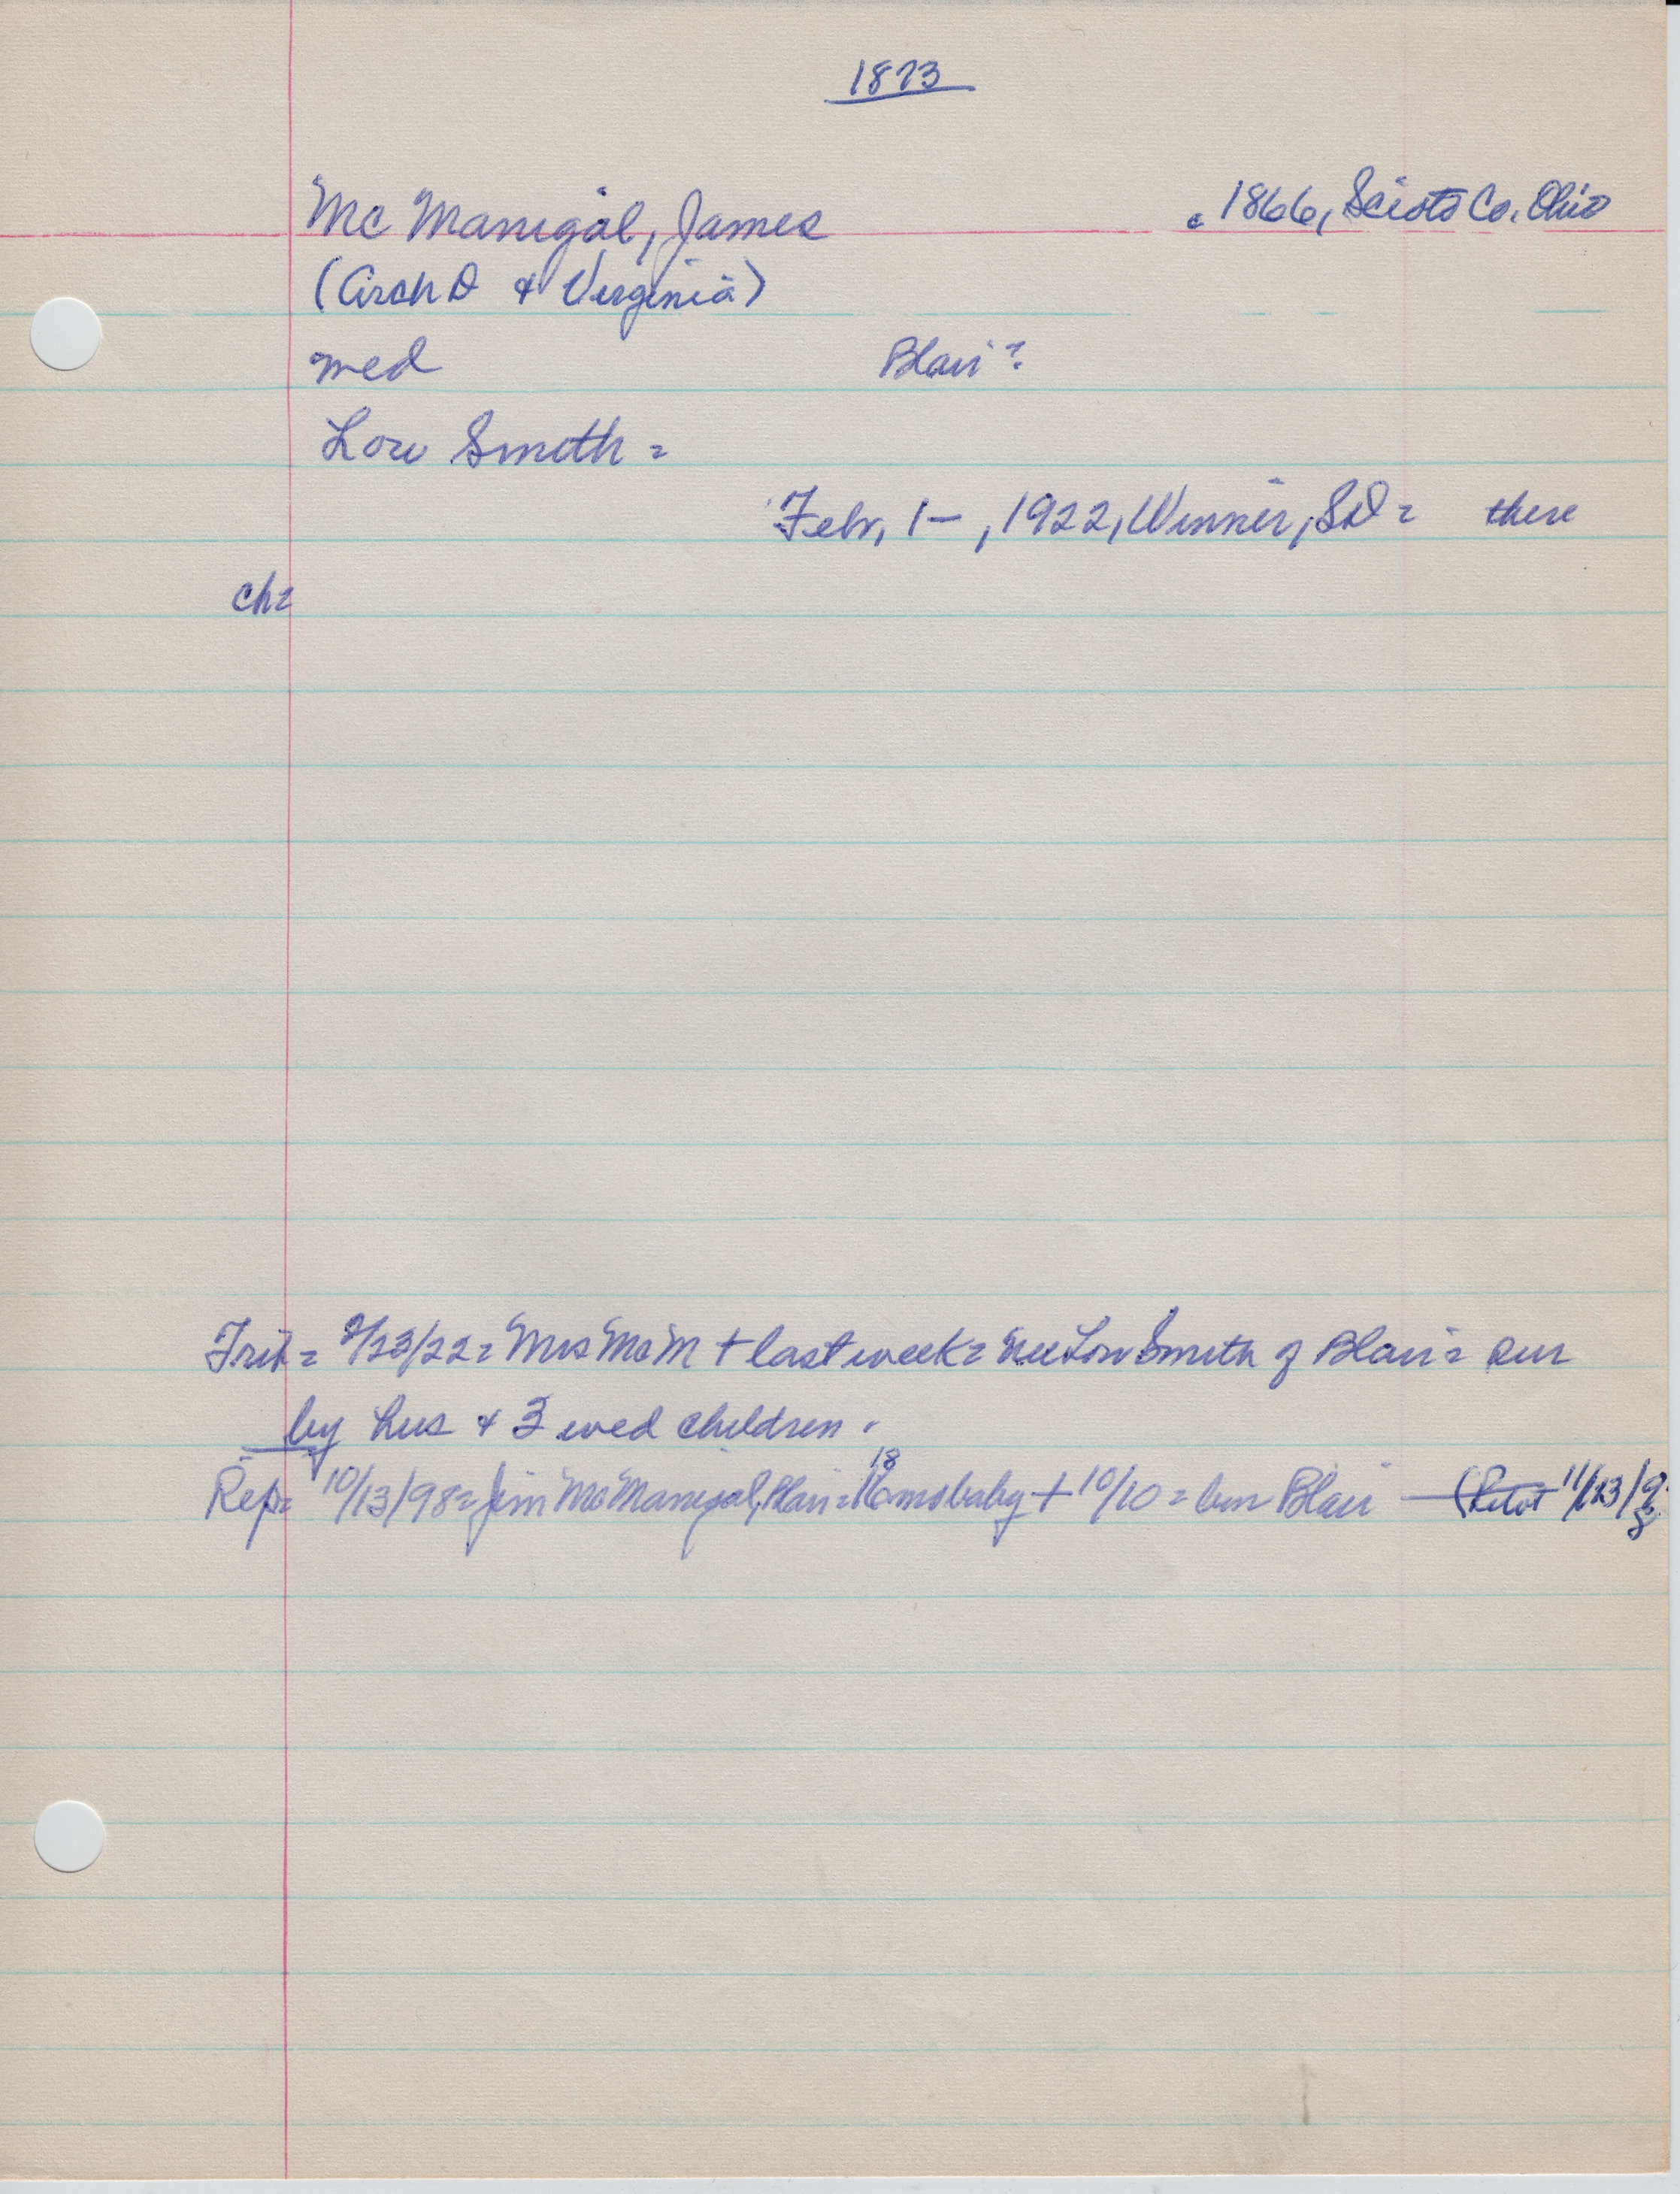 1873
McManigal, James c 1866, Scioto Co. Ohio
(Arch D & Virginia)
med Blair?
Lou Smith =
Febr, 1-, 1922, Winner, SD = there
ch=
Trib = 2/23/22 = Mrs McM + last week = nee Lou Smith of Blair = sur
by hus & 3 wed children.
Rep= 10/13/98 = Jim McManigal, Blair = 18 mo baby + 10/10 = bur Blair (Pilot 11/23/98